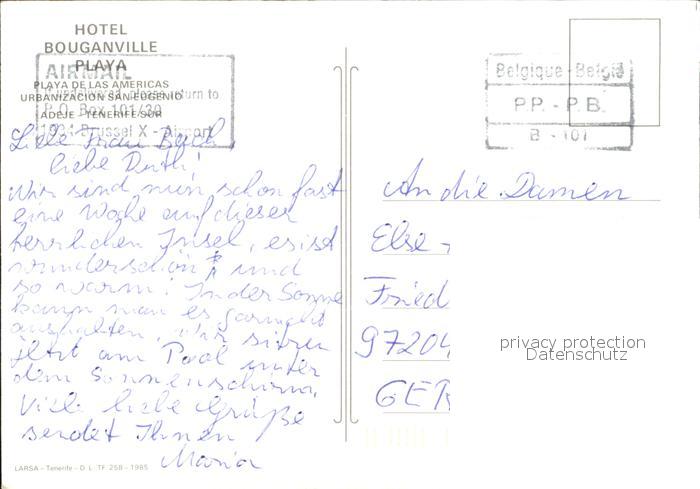 HOTEL
BOUGANVILLE
PLAYA
PLAYA DE LAS AMERICAS
URBANIZACION SAN EUGENIO
ADEJE - TENERIFE SUR
AIRMAIL
If undelivered, please return to
P.O. Box 101/30
1931 Brussel X - Airport
Belgique - België
P.P. - P.B.
B - 101
Liebe Frau
liebe Ruth!
Wir sind nun schon fast
eine Woche auf dieser
herrlichen Insel, es ist
wunderschön und
so warm. In der Sonne
kann man es garnicht
aushalten, wir sitzen
jetzt am Pool unter
dem Sonnenschirm.
Viele liebe Grüße
sendet Ihnen
Maria
An die Damen
Else
Fried
97204
GER
privacy protection
Datenschutz
LARSA - Tenerife - D. L. TF. 258 - 1985